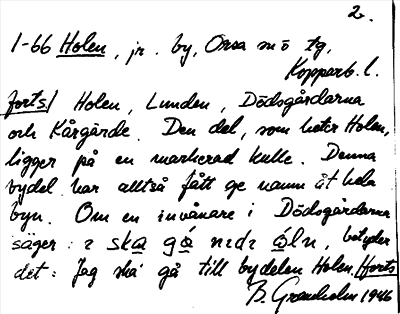 2.
1-66 Holen, jr. by, Orsa sn ö tg,
Kopparb. l.
forts/ Holen, Lunden, Dödsgårdarna
och Kårgärde. Den del, som heter Holen,
ligger på en markerad kulle. Denna
bydel har alltså fått ge namn åt hela
byn. Om en invånare i Dödsgårdarna
säger: ska gå óln, betyder
det: Jag ska gå till bydelen Holen. /forts
B. Granholm 1946